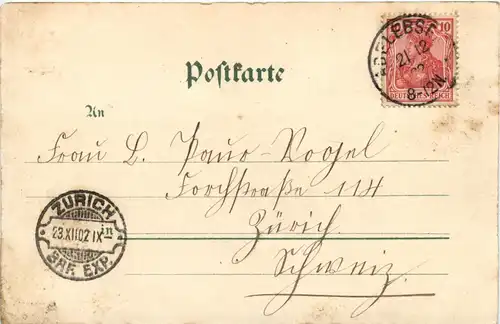 ADELEBSEN
21.12
02
8-12N
10
DEUTSCHES REICH
Postkarte
An
Frau L. Paur-Vogel
Forchstraße 114
Zürich
Schweiz.
ZÜRICH
23.XII.02 IX
BRF. EXP.